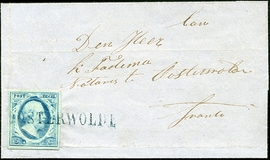 Aan
Den Heer
K Tadema
Notaris te Oosterwolde
franco
POST ZEGEL
OSTERWOLDE